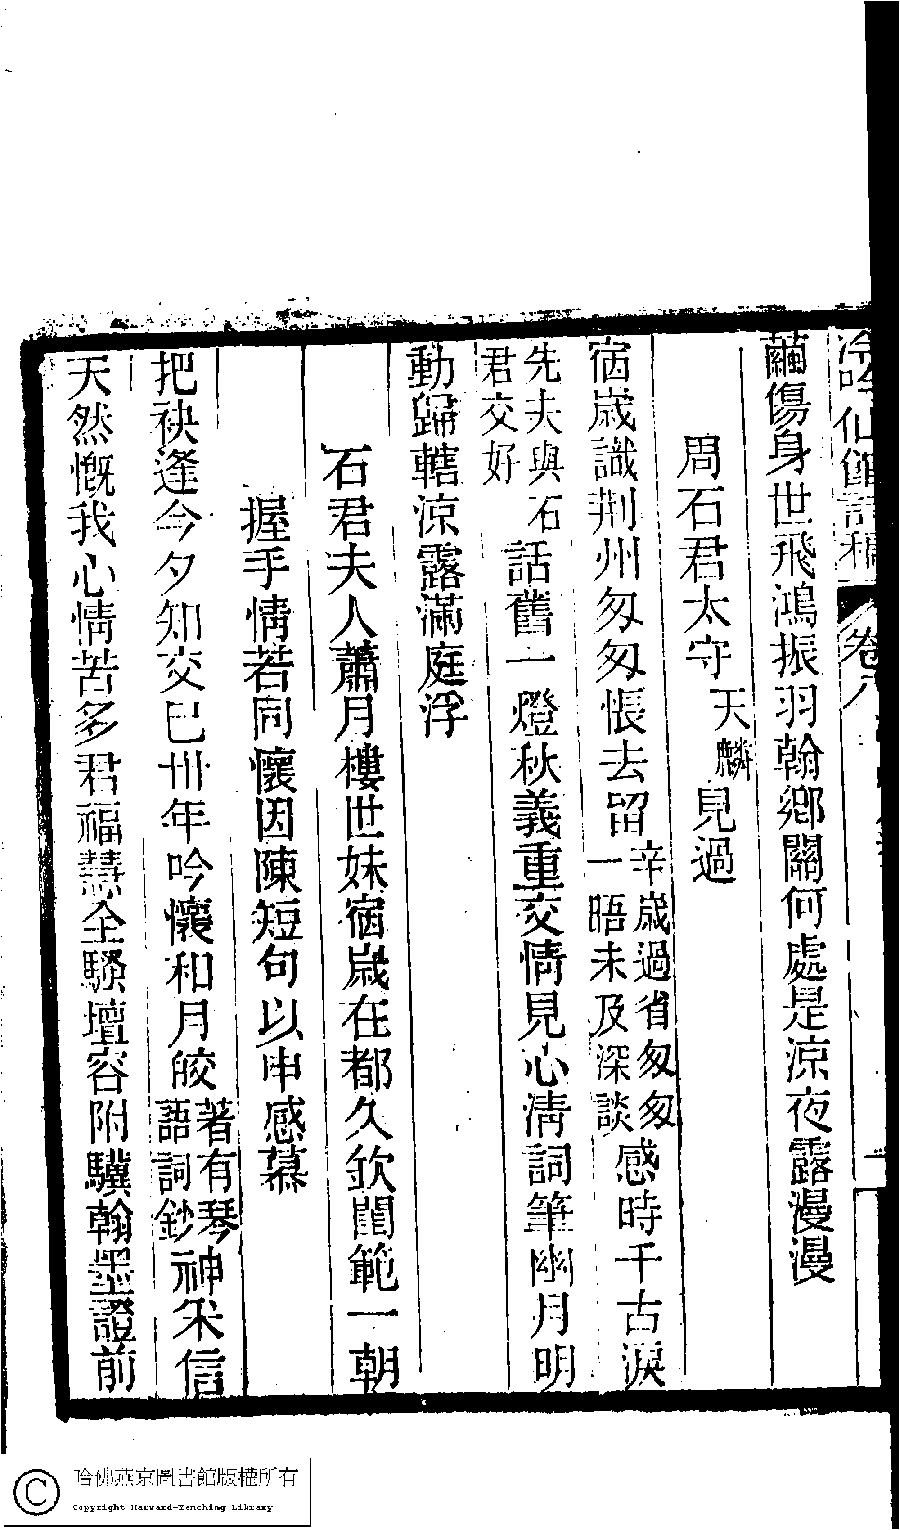 冷吟仙館詩稿 卷八
繭傷身世飛鴻振羽翰鄉關何處是涼夜露漫漫
周石君太守天麟見過
宿歲識荆州匆匆悵去留辛歲過省匆匆一晤未及深談感時千古淚
先夫與石君交好話舊一燈秋義重交情見心淸詞筆幽月明
動歸轄涼露滿庭浮
石君夫人蕭月樓世妹宿歲在都久欽閨範一朝
握手情若同懷因陳短句以申感慕
把袂逢今夕知交已卅年吟懷和月皎著有琴語詞鈔神釆信
天然慨我心情苦多君福慧全騷壇容附驥翰墨證前
哈佛燕京圖書館版權所有
Copyright Harvard-Yenching Library